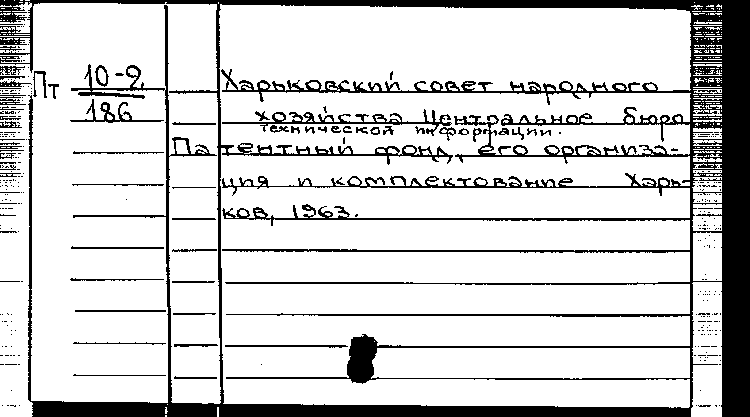 Пт 10-2
186
Харьковский совет народного
хозяйства Центральное бюро
технической информации.
Патентный фонд, его организа-
ция и комплектование Харь-
ков, 1963.